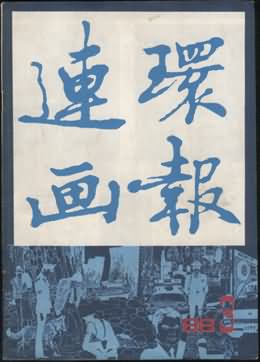 連環
画報
88